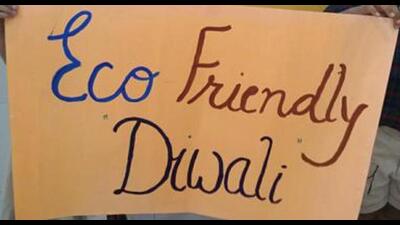 Eco Friendly
"Diwali"